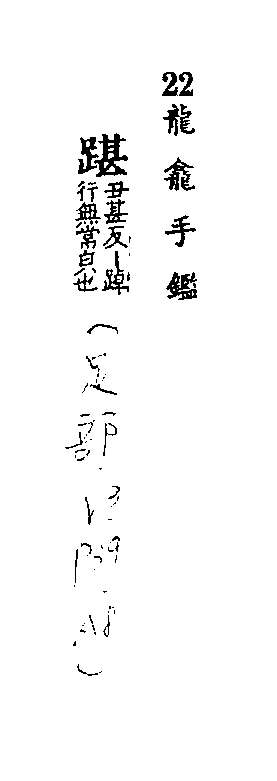 22龍龕手鑑
踸
丑甚反｜踔
行無常皃也
(足部)